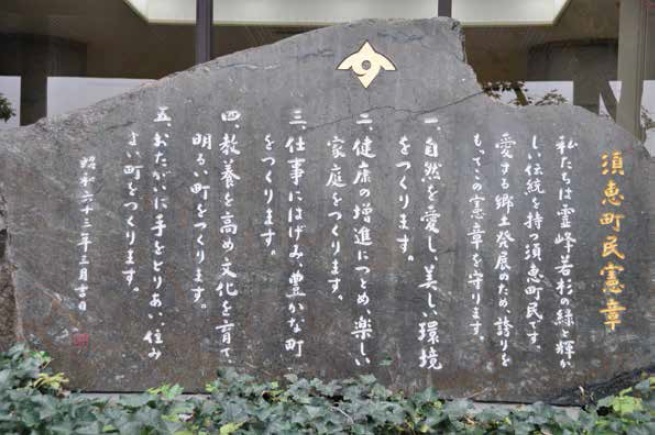 須恵町民憲章
私たちは霊峰若杉の緑と輝か
しい伝統を持つ須恵町民です。
愛する郷土発展のため、誇りを
もってこの憲章を守ります。
一、自然を愛し、美しい環境
をつくります。
二、健康の増進につとめ、楽しい
家庭をつくります。
三、仕事にはげみ、豊かな町
をつくります。
四、教養を高め、文化を育て、
明るい町をつくります。
五、おたがいに手をとりあい、住み
よい町をつくります。
昭和六十三年三月吉日